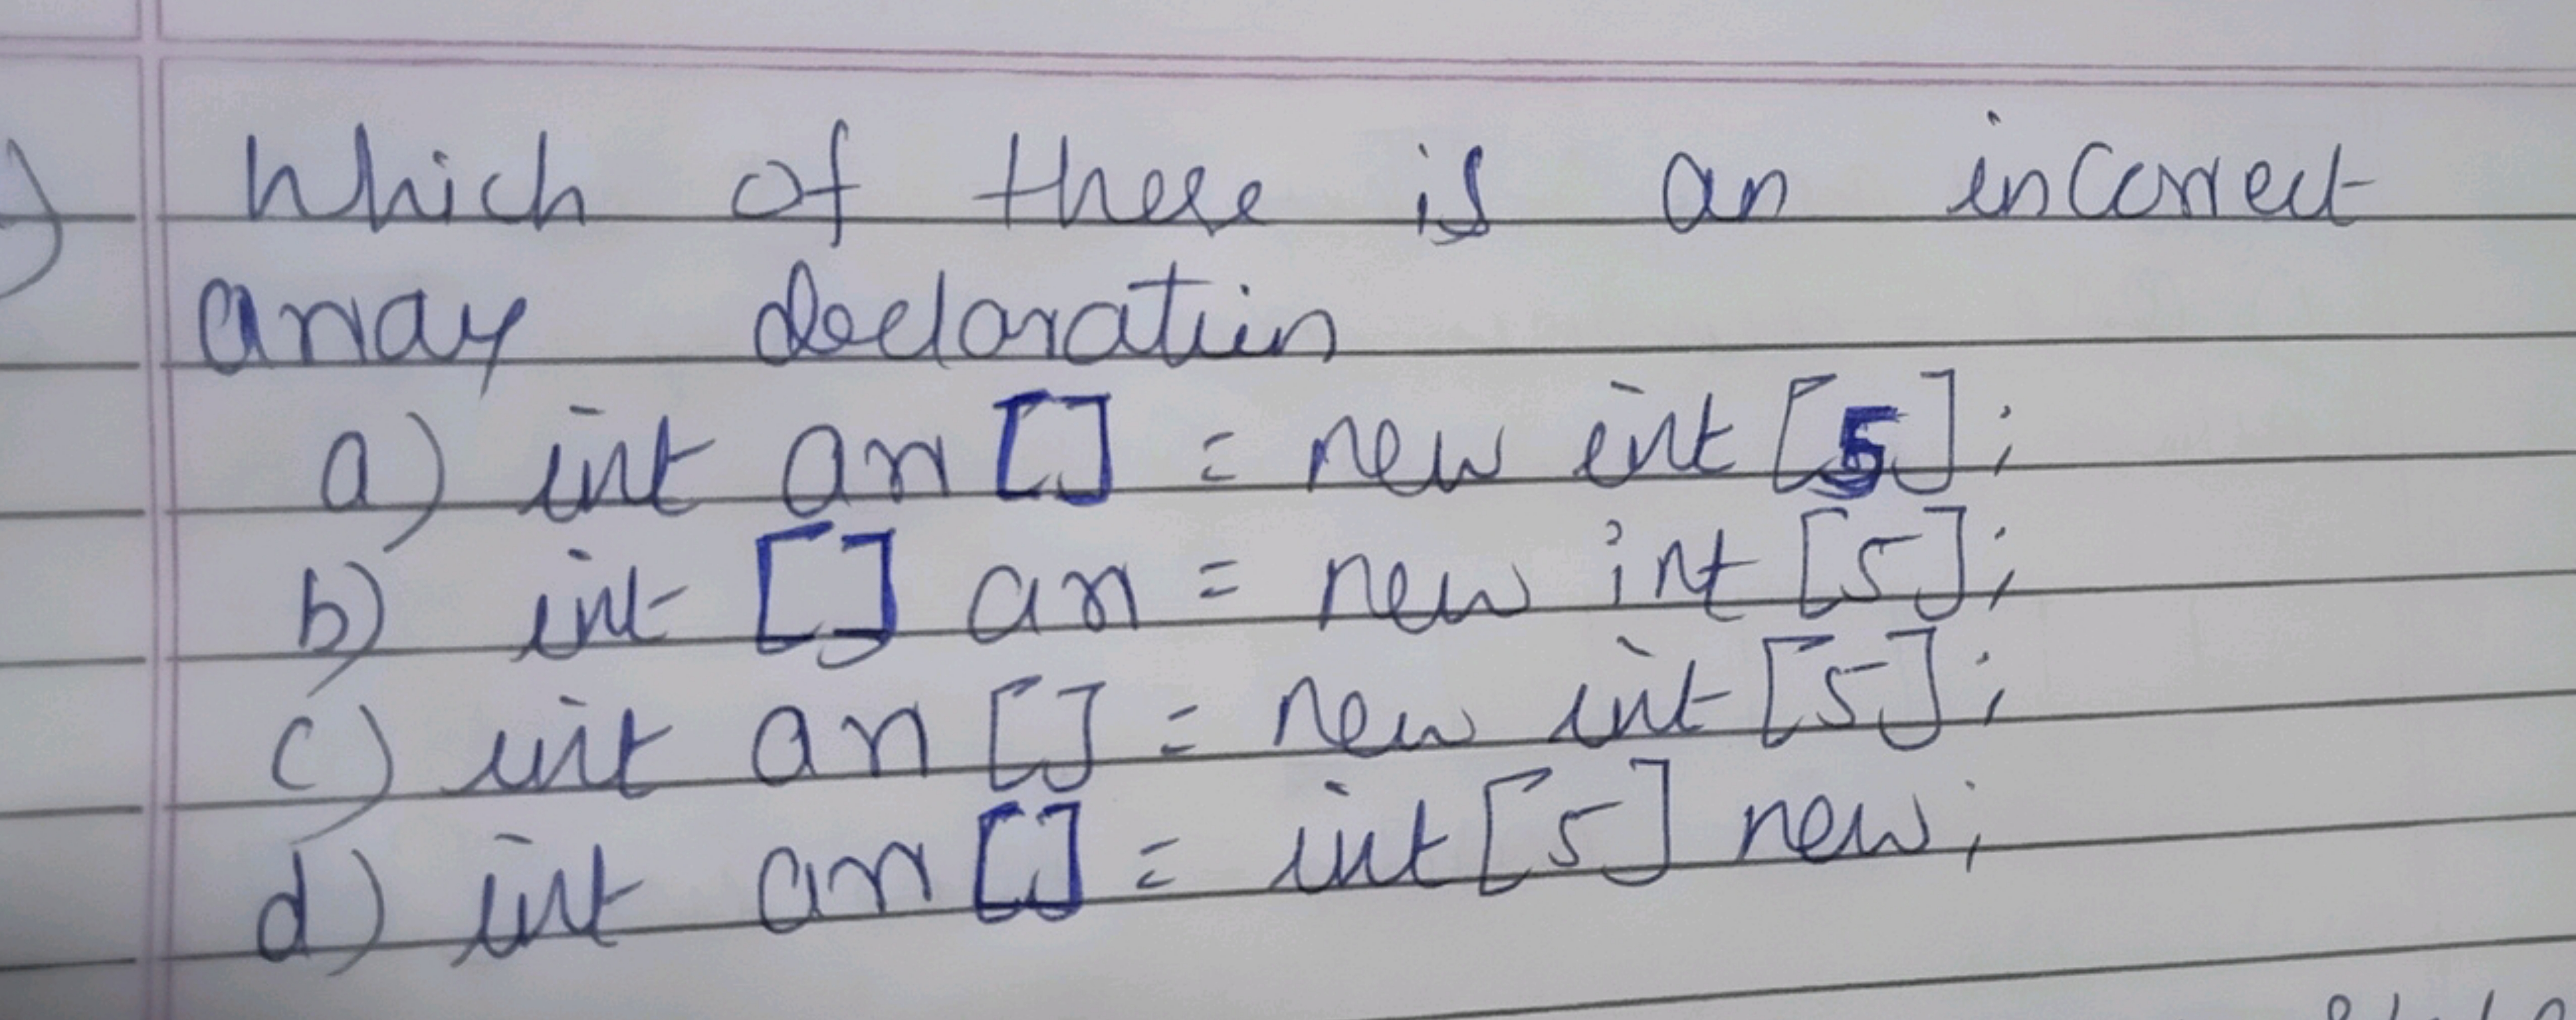 Which of these is an incorrect
array declaration
a) int arr [] = new int [5];
b) int [] arr = new int [5];
c) int arr [] = new int [5];
d) int arr [] = int [5] new;